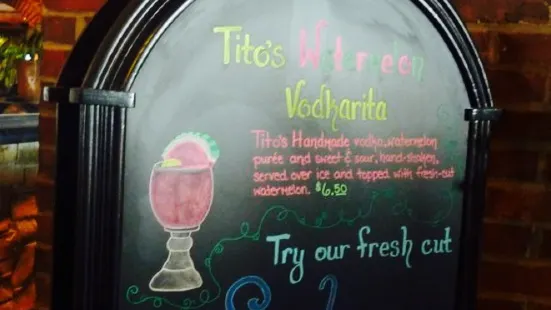 Tito's Watermelon
Vodkarita
Tito's Handmade vodka, watermelon
purée and sweet & sour, hand-shaken,
served over ice and topped with fresh-cut
watermelon. $6.50
Try our fresh cut